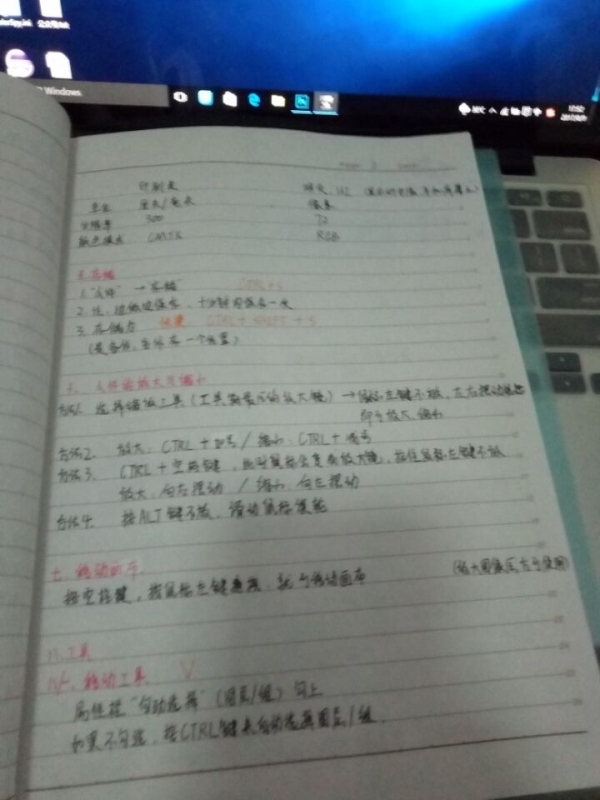 Windows
印刷类
单位 厘米/毫米 像素
分辨率 300 72
颜色模式 CMYK RGB
五.存储
1."文件" → 存储 CTRL+S
2. 边做边保存，十分钟保存一次
3. 存储为 快捷 CTRL+SHIFT+S
六、文件的放大及缩小
方法1. 选择缩放工具（工具箱最后的放大镜）→鼠标左键不放，左右摆动鼠标
即可放大.缩小
方法2. 放大：CTRL+加号/缩小：CTRL+减号
方法3. CTRL+空格键，此时鼠标会变成放大镜，按住鼠标左键不放
放大，向右摆动 / 缩小，向左摆动
方法4. 按ALT键不放，滑动鼠标滚轮
七.移动画布
按空格键，按鼠标左键拖拽，就可移动画布 (放大图像后方可使用)
八.工具
移动工具 V
属性栏"自动选择"（图层/组）勾上
如果不勾选，按CTRL键来自动选择图层/组.